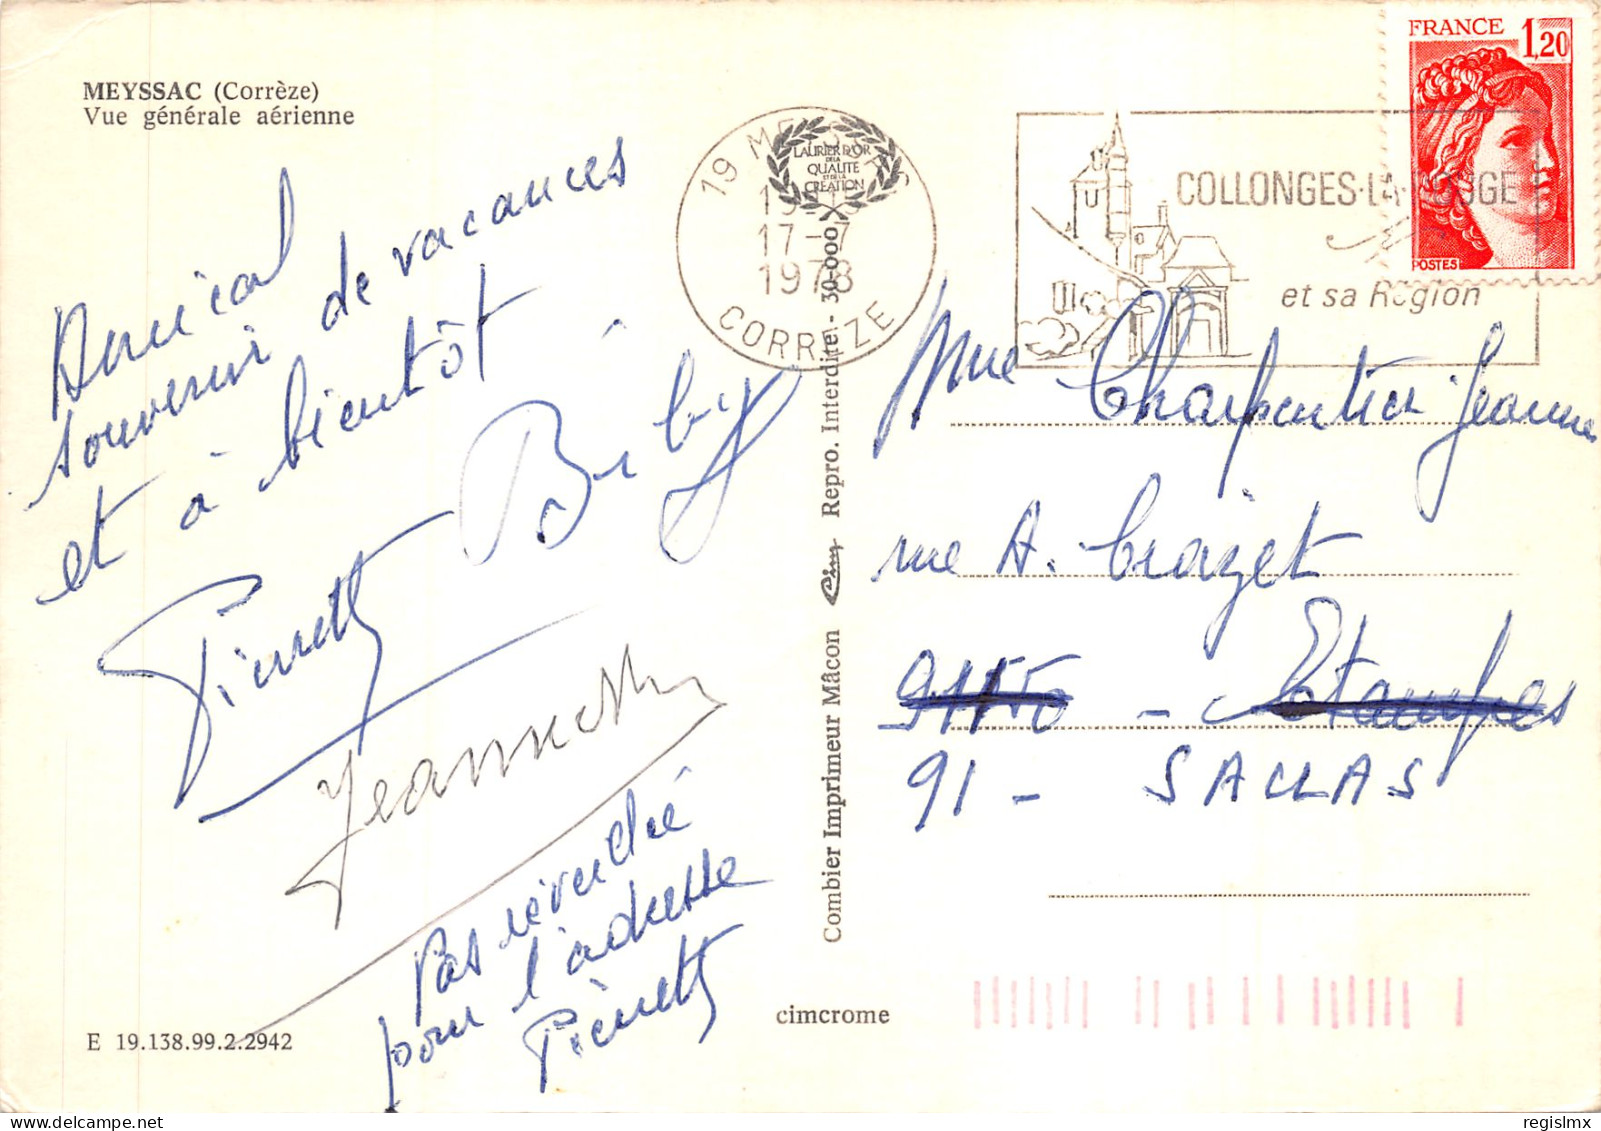 MEYSSAC (Corrèze)
Vue générale aérienne
Amical
souvenir de vacances
et à bientôt
Pierrette
Jeannette
Pas
pour l'adresse
Pierrette
E 19.138.99.2.2942
cimcrome
Combier Imprimeur Mâcon Cim Repro. Interdite - 30-000
LAURIER D'OR
DE LA
QUALITE
ET DE LA
CREATION
19
17-7
1978
CORREZE
COLLONGES-LA-ROUGE
et sa Région
FRANCE 1,20
POSTES
Mme Charpentier Jeanne
rue A.
91150 - Etampes
91 - SACLAS
regislmx